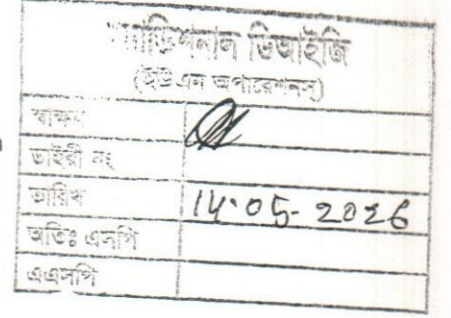 অ্যাডিশনাল ডিআইজি
(ইউএন অপারেশনস্)
স্বাক্ষর
ডাইরী নং
তারিখ 14·05-2026
অতিঃ এসপি
এএসপি